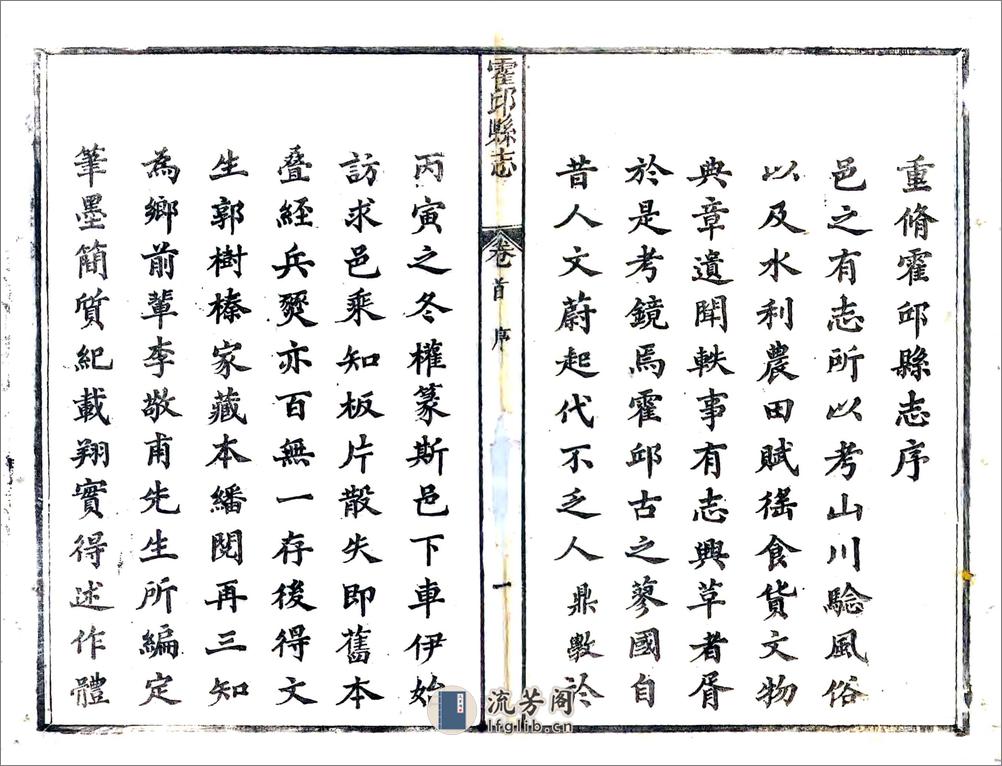 重脩霍邱縣志序
邑之有志所以考山川騐風俗
以及水利農田賦徭食貨文物
典章遺聞軼事有志興革者胥
於是考鏡焉霍邱古之蓼國自
昔人文蔚起代不乏人鼎敷於
霍邱縣志
卷首
序
一
丙寅之冬權篆斯邑下車伊始
訪求邑乘知板片散失即舊本
疊經兵燹亦百無一存後得文
生郭樹榛家藏本繙閱再三知
為鄉前輩李敬甫先生所編定
筆墨簡質紀載翔實得述作體
流芳阁
lfglib.cn